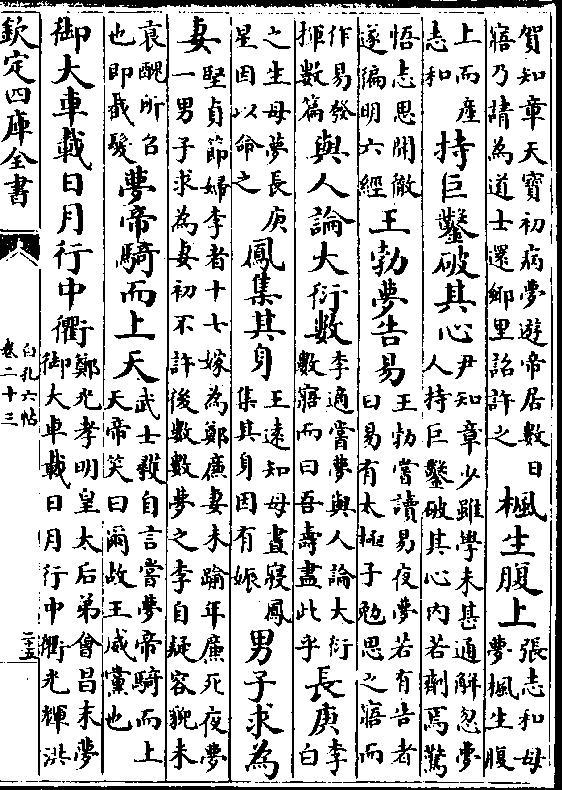 賀知章天寶初病夢遊帝居數日寤乃請為道士還鄉里詔許之楓生腹上張志和母夢楓生腹
上而產志和持巨鑿破其心尹知章少雖學未甚通解忽夢人持巨鑿破其心内若劑焉驚
悟志思開徹遂徧明六經王勃夢告易王勃嘗讀易夜夢若有告者曰易有太極子勉思之寤而
作易發揮數篇與人論大衍數李適嘗夢與人論大衍數寤而曰吾壽盡此乎長庚李白
之生母夢長庚星因以命之鳳集其身王遠知母晝寢鳳集其身因有娠男子求為
妻堅貞節婦李者十七嫁為鄭廉妻未踰年廉死夜夢一男子求為妻初不許後數數夢之李自疑容貌未
衰醜所召也即截髮夢帝騎而上天武士彠自言嘗夢帝騎而上天帝笑曰爾故王咸黨也
御大車載日月行中衢鄭光孝明皇太后弟會昌末夢御大車載日月行中衢光輝洪
欽定四庫全書
白孔六帖
卷二十三
二十五